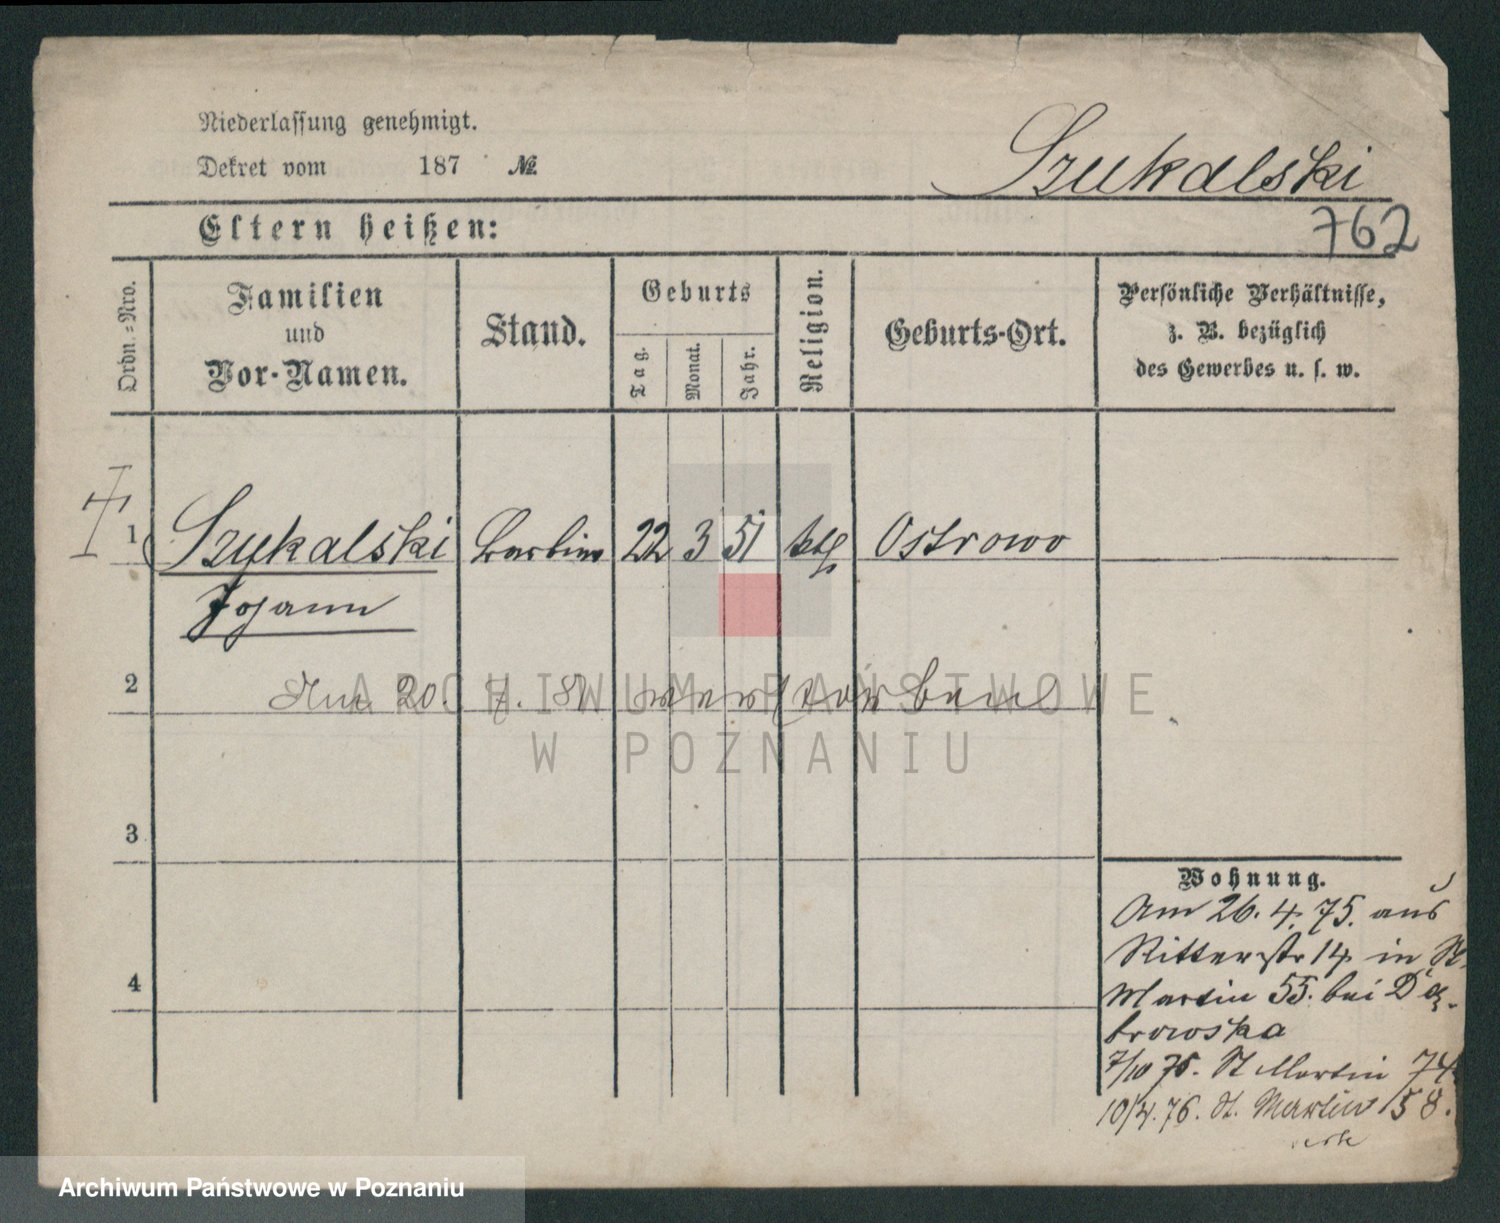 Niederlassung genehmigt.
Dekret vom 187 №
Szukalski
762
Eltern heißen:
Ordn.-Nro.
Familien
und
Vor-Namen.
Stand.
Geburts
Tag.
Monat.
Jahr.
Religion.
Geburts-Ort.
Persönliche Verhältnisse,
z. B. bezüglich
des Gewerbes u. s. w.
1 Szukalski Barbier 22 3 51 kth Ostrowo
Johann
2 Am 20. 7. 81 verstorben
3
4
Wohnung.
Am 26. 4. 75. aus
Ritterstr 14 in St.
Martin 55. bei Dą-
browska
7/10 75. St Martin 74
10/4. 76. St. Martin 58.
ARCHIWUM PAŃSTWOWE
W POZNANIU
Archiwum Państwowe w Poznaniu